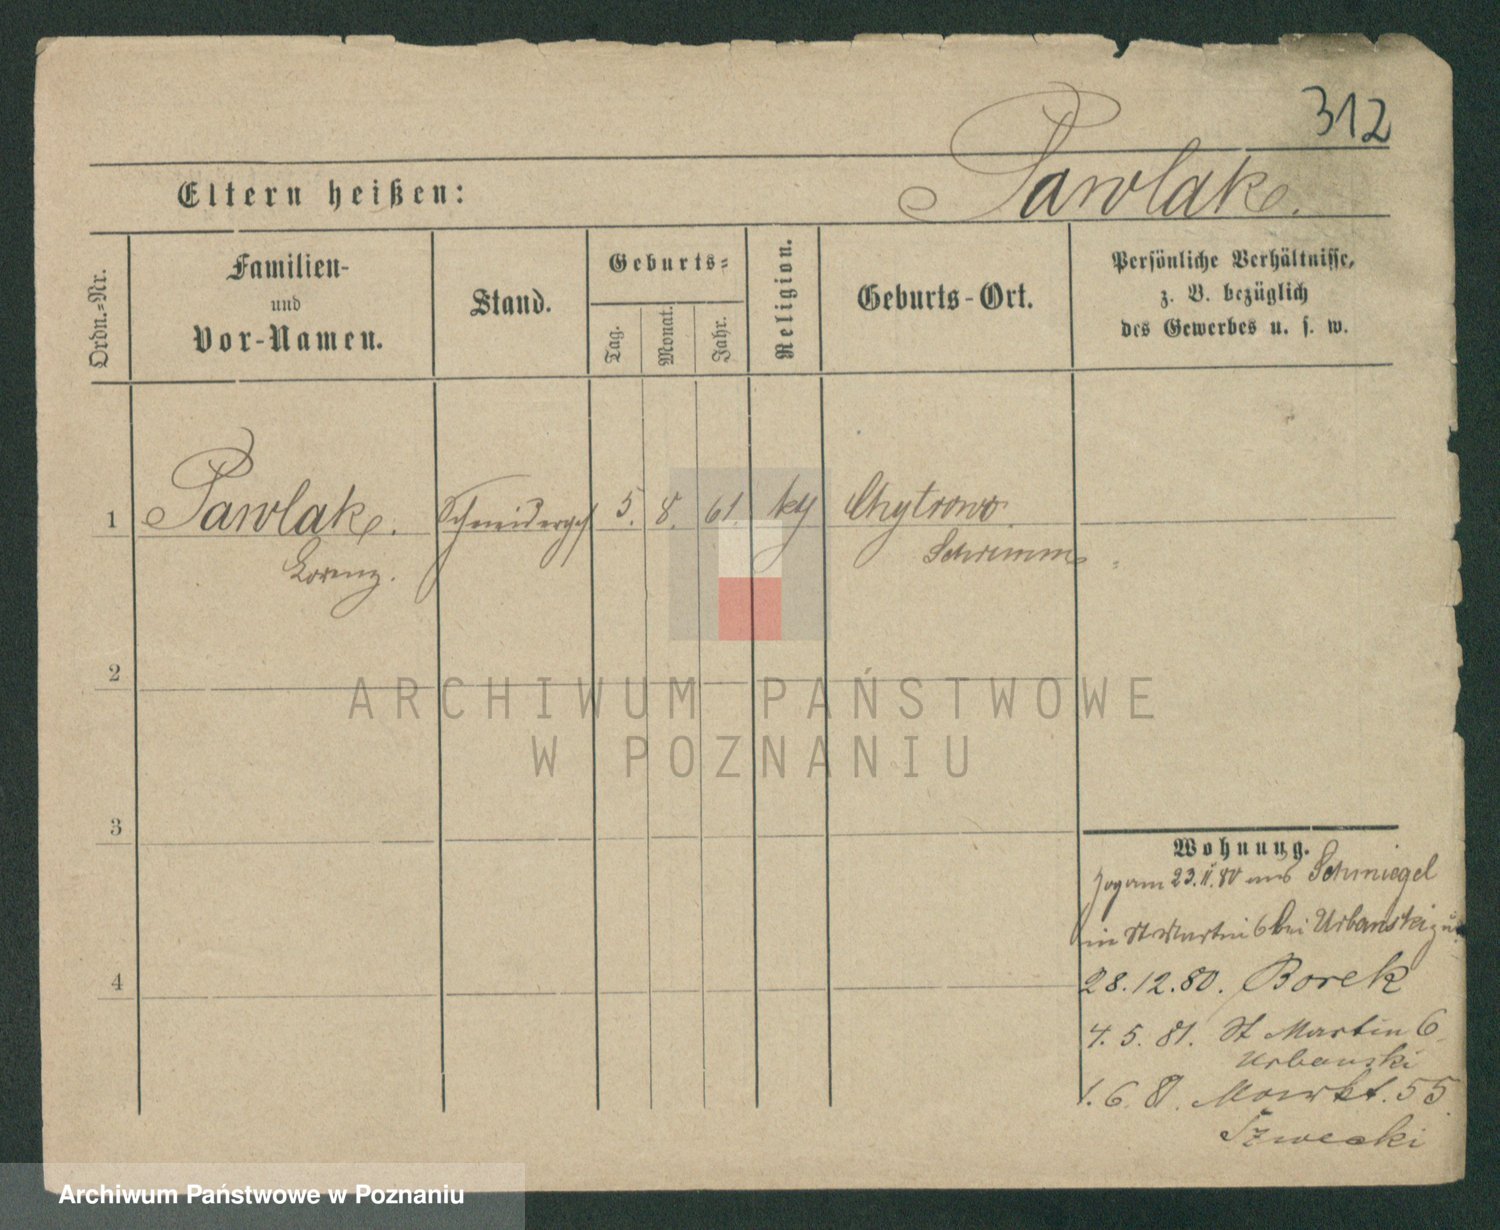 312
Eltern heißen:
Pawlak.
Ordn.-Nr.
Familien-
und
Vor-Namen.
Stand.
Geburts-
Tag.
Monat.
Jahr.
Religion.
Geburts-Ort.
Persönliche Verhältnisse,
z. B. bezüglich
des Gewerbes u. s. w.
1 Pawlak. Schneiderges 5. 8. 61. Chytrowo
Lorenz. Schrimm
2
ARCHIWUM PAŃSTWOWE
W POZNANIU
3
Wohnung.
zog am 23. II. 80 aus Schmiegel
in St Martin 6 bei Urbanski zu
4
28.12.80. Borek
4. 5. 81. St Martin 6
Urbanski
1. 6. 81. Markt. 55
Szwecki
Archiwum Państwowe w Poznaniu